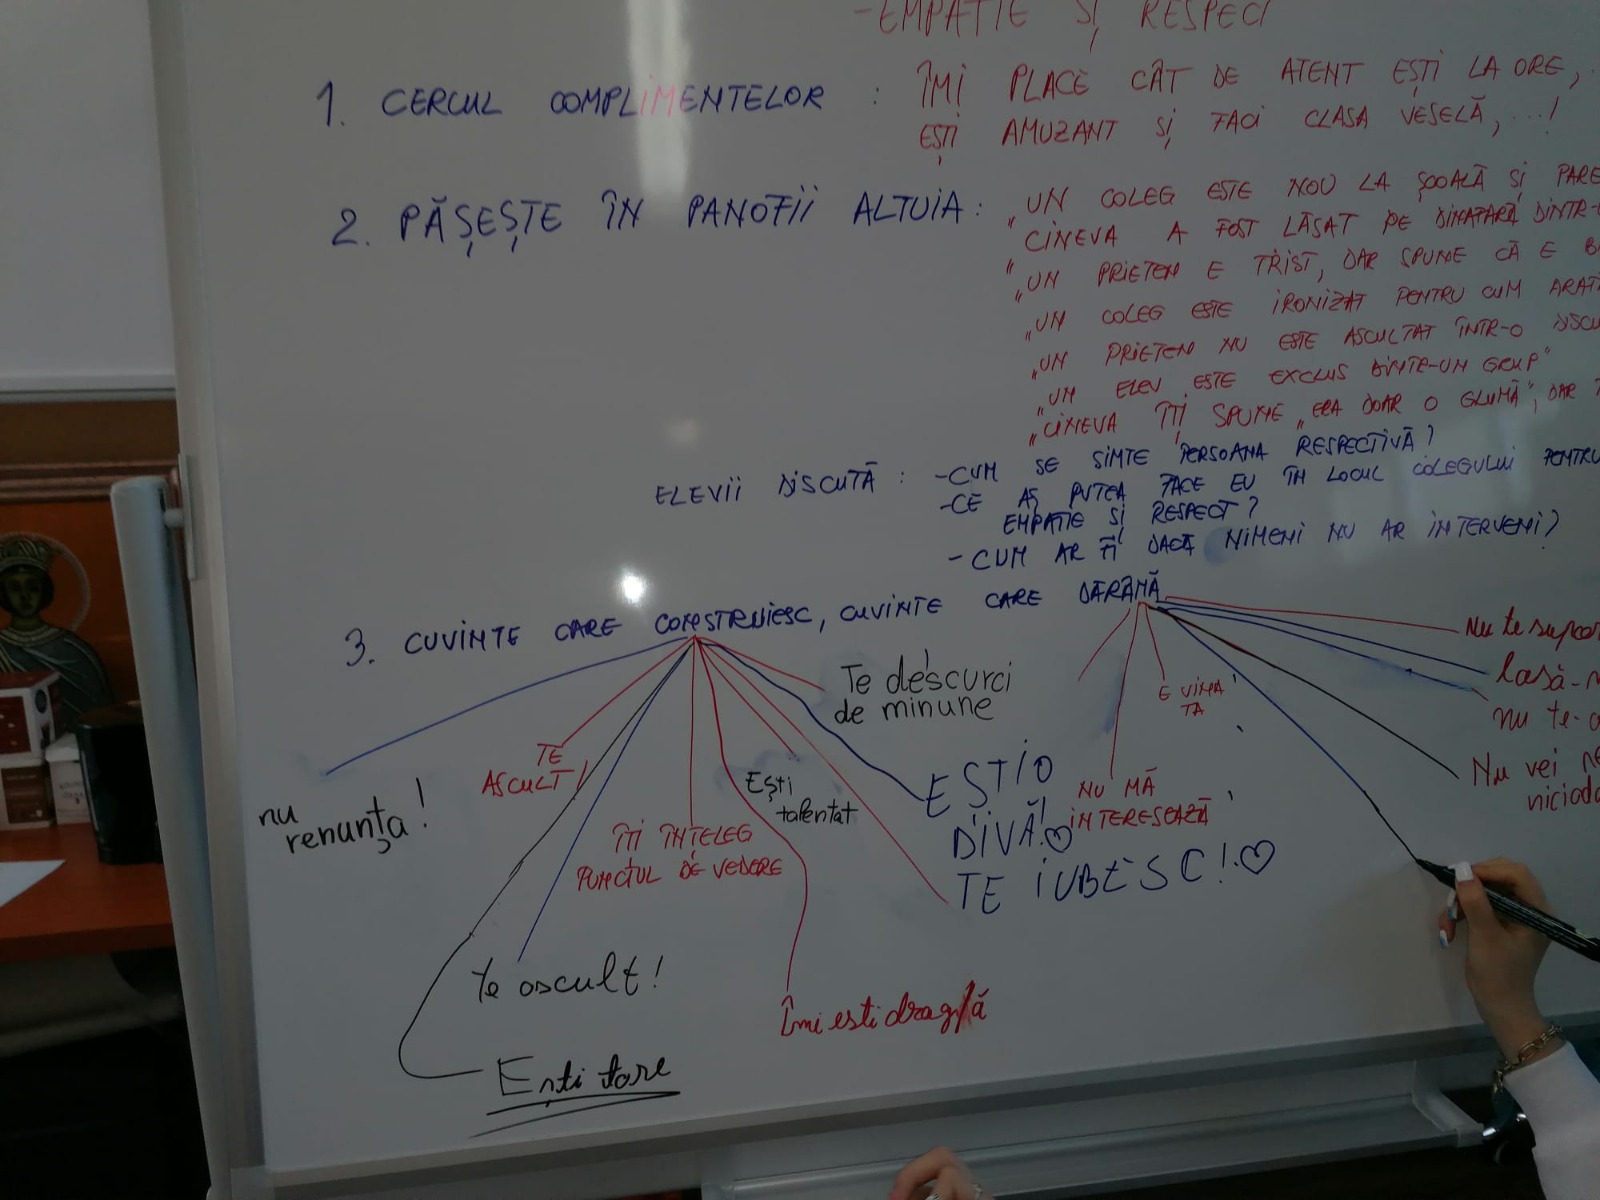 -EMPATIE ȘI RESPECT
1. CERCUL COMPLIMENTELOR : ÎMI PLACE CÂT DE ATENT EȘTI LA ORE,
EȘTI AMUZANT ȘI FACI CLASA VESELĂ, ...!
2. PĂȘEȘTE ÎN PANOFII ALTUIA: „UN COLEG ESTE NOU LA ȘCOALĂ ȘI PARE
„CINEVA A FOST LĂSAT PE DINAFARĂ DINTR-
„UN PRIETEN E TRIST, DAR SPUNE CĂ E
„UN COLEG ESTE IRONIZAT PENTRU CUM ARATĂ
„UN PRIETEN NU ESTE ASCULTAT ÎNTR-O
„UN ELEV ESTE EXCLUS DINTR-UN GRUP"
„CINEVA ÎȚI SPUNE „ERA DOAR O GLUMĂ", DAR
ELEVII DISCUTĂ : -CUM SE SIMTE PERSOANA RESPECTIVĂ?
-CE AȘ PUTEA FACE EU ÎN LOCUL COLEGULUI PENTRU
EMPATIE ȘI RESPECT?
- CUM AR FI DACĂ NIMENI NU AR INTERVENI?
3. CUVINTE CARE CONSTRUIESC, CUVINTE CARE DĂRÂMĂ
nu
renunța!
TE
ASCULT!
ÎȚI ÎNȚELEG
PUNCTUL DE VEDERE
Ești
talentat
Te descurci
de minune
EȘTI O
DIVĂ!♡
TE IUBESC!♡
Te ascult!
Ești tare
Îmi ești dragă
E VINA
TA
NU MĂ
INTERESEAZĂ
Nu te
lasă-
nu te-
Nu vei